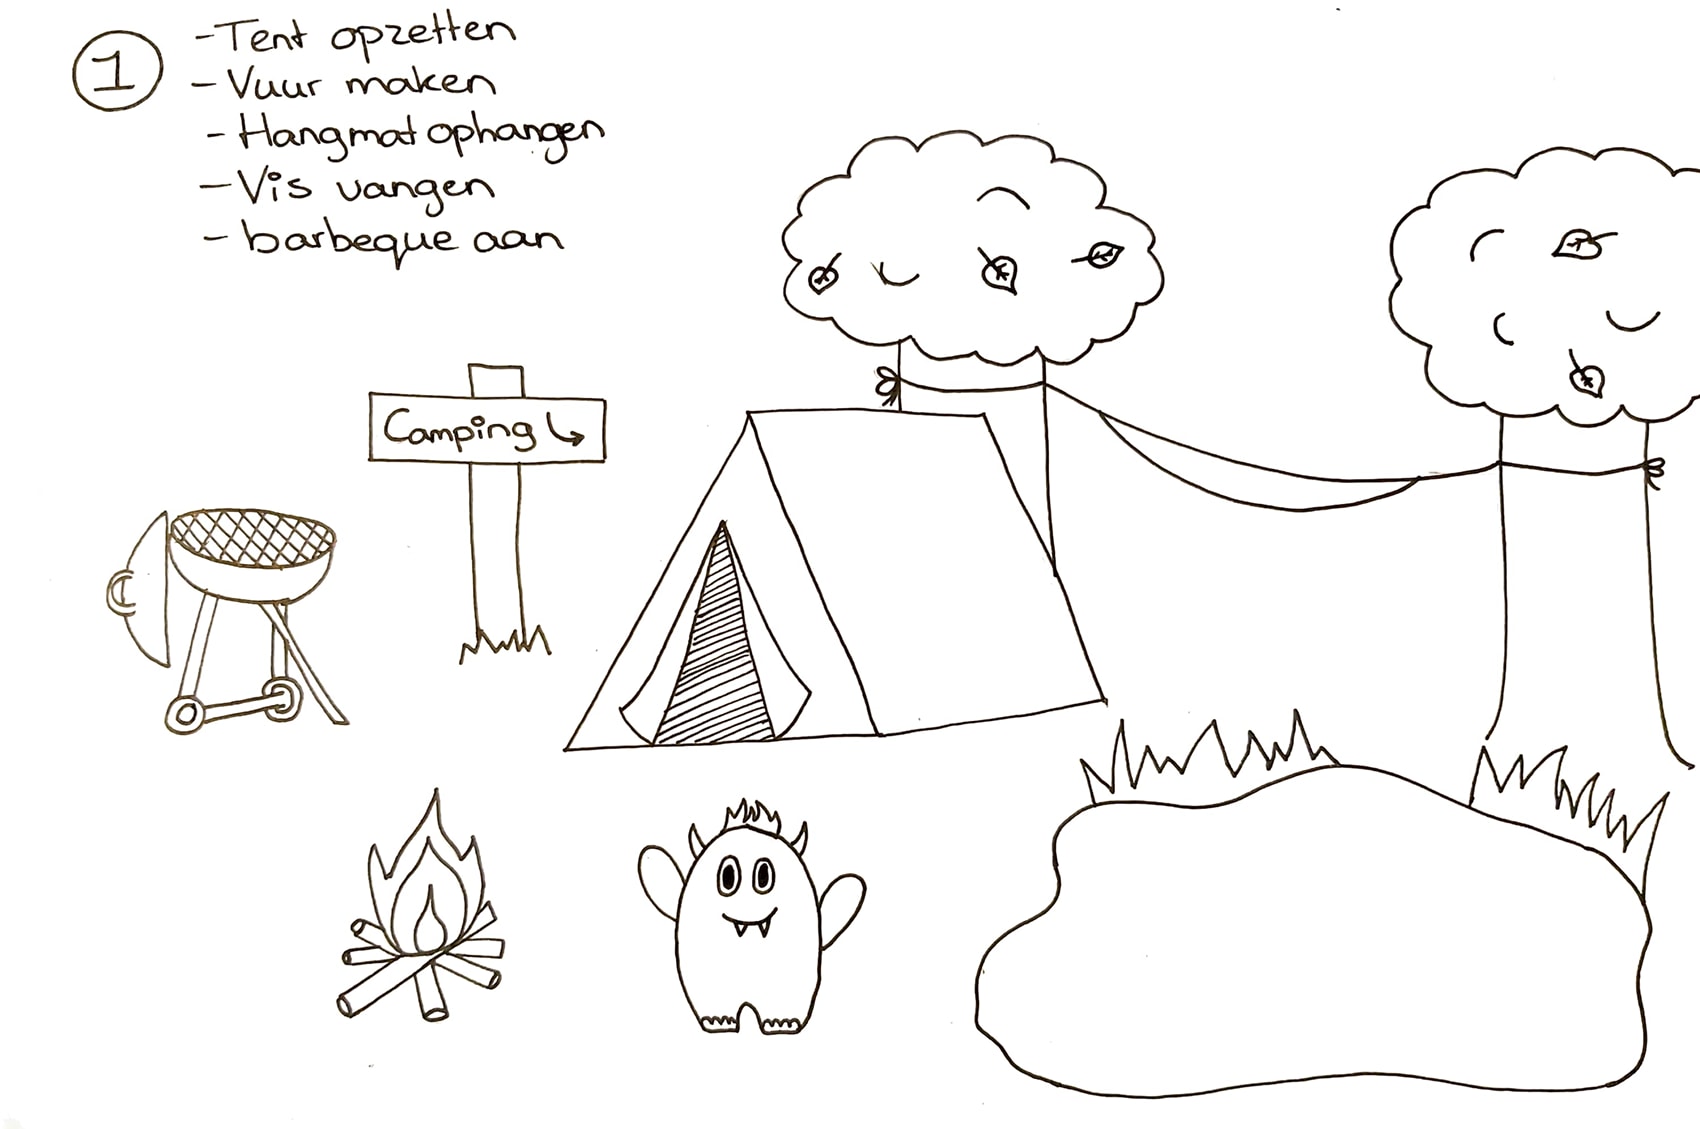 1
- Tent opzetten
- Vuur maken
- Hangmat ophangen
- Vis vangen
- barbeque aan
Camping ↳